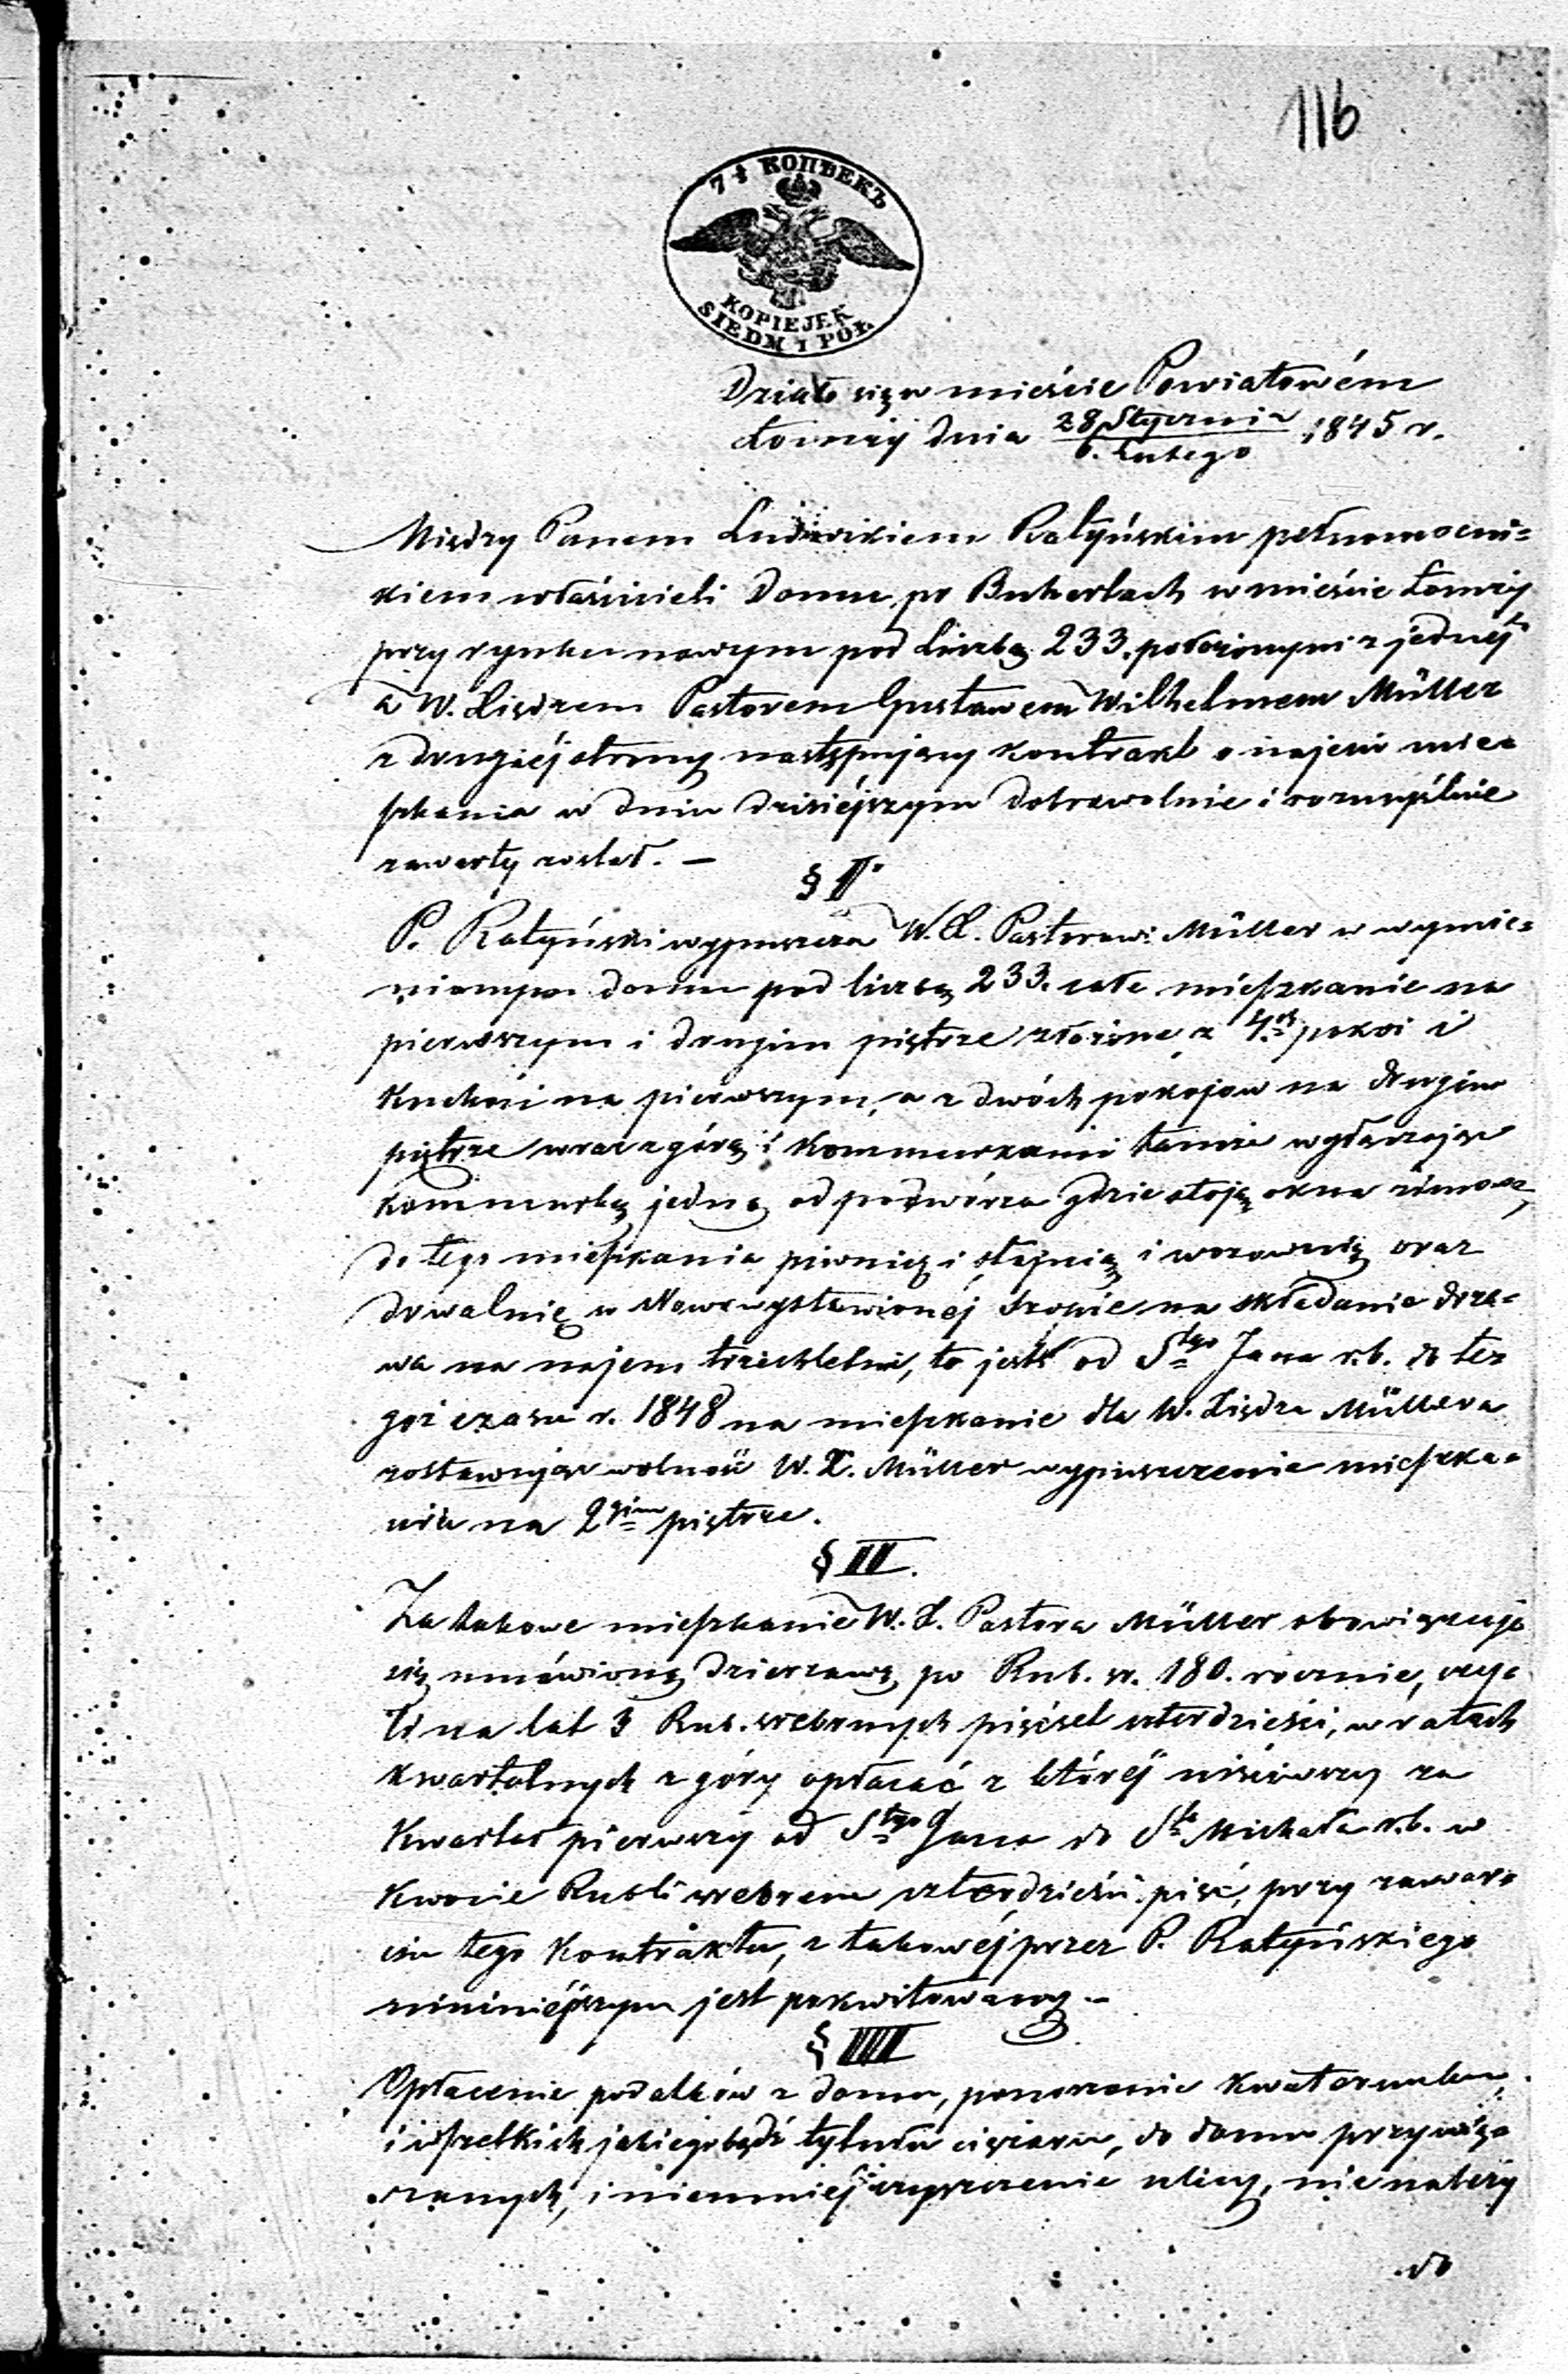 116
7½ КОПѢЕКЪ
KOPIEJEK
SIEDM I PÓŁ
Działo się w mieście Powiatowém
Łomży dnia 28 Stycznia / 6. Lutego 1845 r.
Między Panem Ludwikiem Ratyńskim pełnomocni=
kiem właścicieli Domu po Bukertach w mieście Łomży
przy rynku nowym pod Liczbą 233. położonym z jednéj
a W. Xiędzem Pastorem Gustawem Wilhelmem Müller
z drugiéj strony następujący kontrakt o najem miesz
szkania w dniu dzisiéjszym dobrowolnie i rozmyślnie
zawarty został. —
§ I.
P. Ratyński wypuszcza W. X. Pastorowi Müller w wymie=
nionym domu pod liczbą 233. całe mieszkanie na
pierwszym i drugim piętrze złożone z 4ch pokoi i
Kuchni na pierwszym, a z dwóch pokojow na drugim
piętrze wraz z górą i Kommurkami tamże wyłączając
kommurkę jedną od podwórza gdzie stoją okna zimowe,
do tego mieszkania piwnicę i stajnią i wozownią oraz
drwalnię w Nowowystawionéj szopie na składanie drze=
wa na najem trzechletni, to jest od Stgo Jana r.b. do teg
goż czasu r. 1848 na mieszkanie dla W. Xiędza Müllera
zostawując wolność W. X. Müller wypuszczenie mieszka=
nia na 2gim piętrze.
§ II.
Za takowe mieszkanie W. X. Pastora Müller obowiązuje
się umówioną dzierzawę po Rub. sr. 180. rocznie, czy=
li na lat 3 Rub. srebrnych pięćset czterdzieści, w ratach
kwartalnych z góry opłacać z któréj uiściwszy za
Kwartał pierwszy od Stgo Jana do Sto Michała r.b. w
kwocie Rubli srebrem czterdzieści pięć, przy zawar=
ciu tego Kontraktu, z takowéj przez P. Ratyńskiego
nininiéjszym jest pokwitowany. —
§ III
Opłacenie podatków z domu, ponoszenie Kwaterunku,
i wszelkich jakiegobądź tytułu ciężaru, do domu przywią
zanych, i niemniéj czyszczenie ulicy, nie należy
do